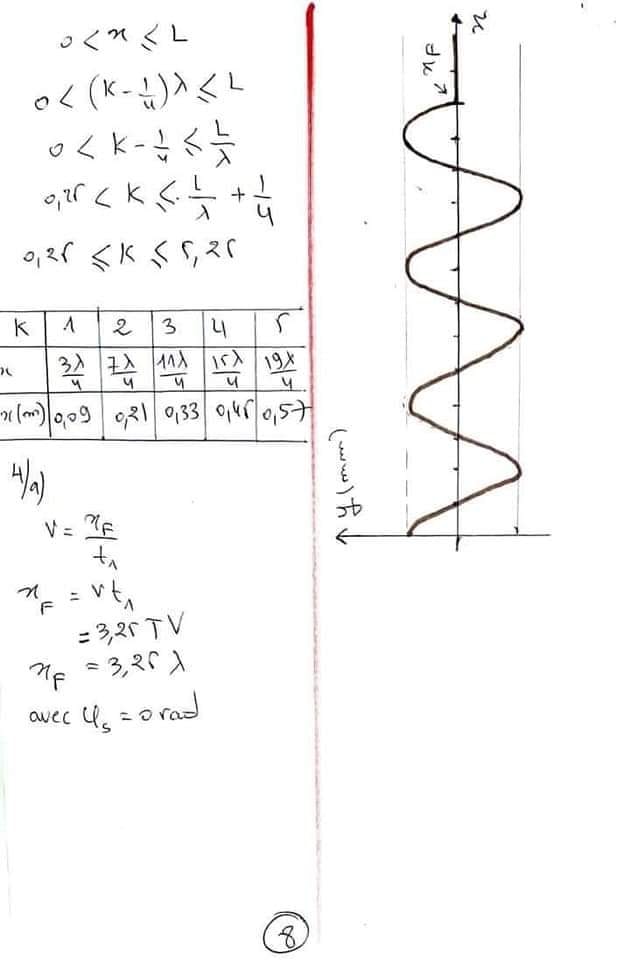 0 < x ≤ L
0 < (K - 1/4) λ ≤ L
0 < K - 1/4 ≤ L/λ
0,25 < K ≤ L/λ + 1/4
0,25 ≤ K ≤ 5,25
K 1 2 3 4 5
x 3λ/4 7λ/4 11λ/4 15λ/4 19λ/4
x(m) 0,09 0,21 0,33 0,45 0,57
4/a)
V = xF/t1
xF = vt1
= 3,25 TV
xF = 3,25 λ
avec φs = 0 rad
8
x
xF
(mm)